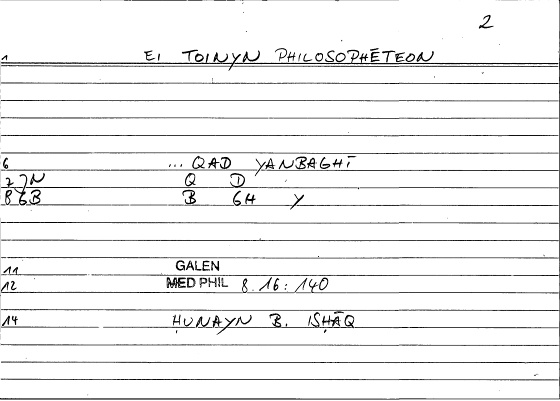 2
1 EI TOINYN PHILOSOPHĒTEON
6 ... QAD YANBAGHĪ
7 N Q D
8 GB B GH Y
11 GALEN
12 MED PHIL 8.16: 140
14 ḤUNAYN B. ISḤĀQ